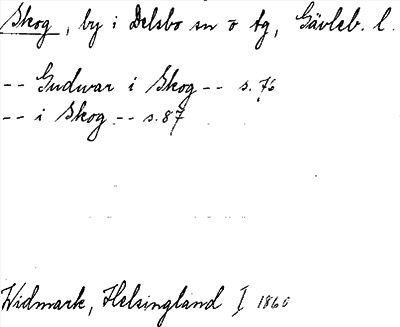 Skog, by i Delsbo sn o tg, Gävleb. l.
-- Gudwar i Skog -- s. 76
-- i Skog -- s. 87
Widmark, Helsingland I 1860